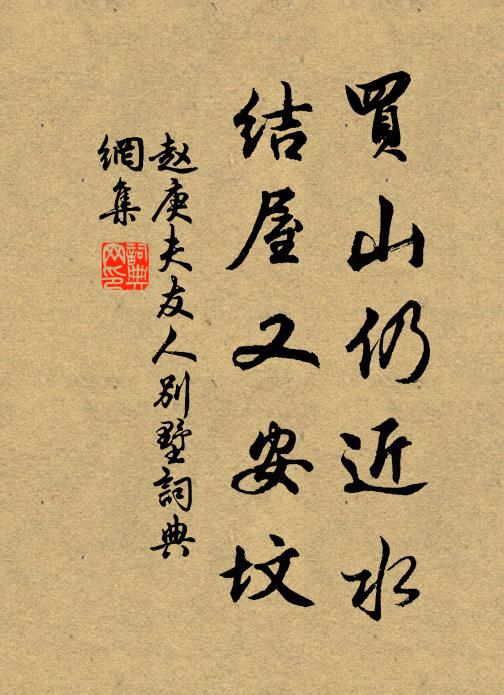 買山仍近水
结屋又安坟
赵庚夫友人别墅詞典
網集
詞典
网印